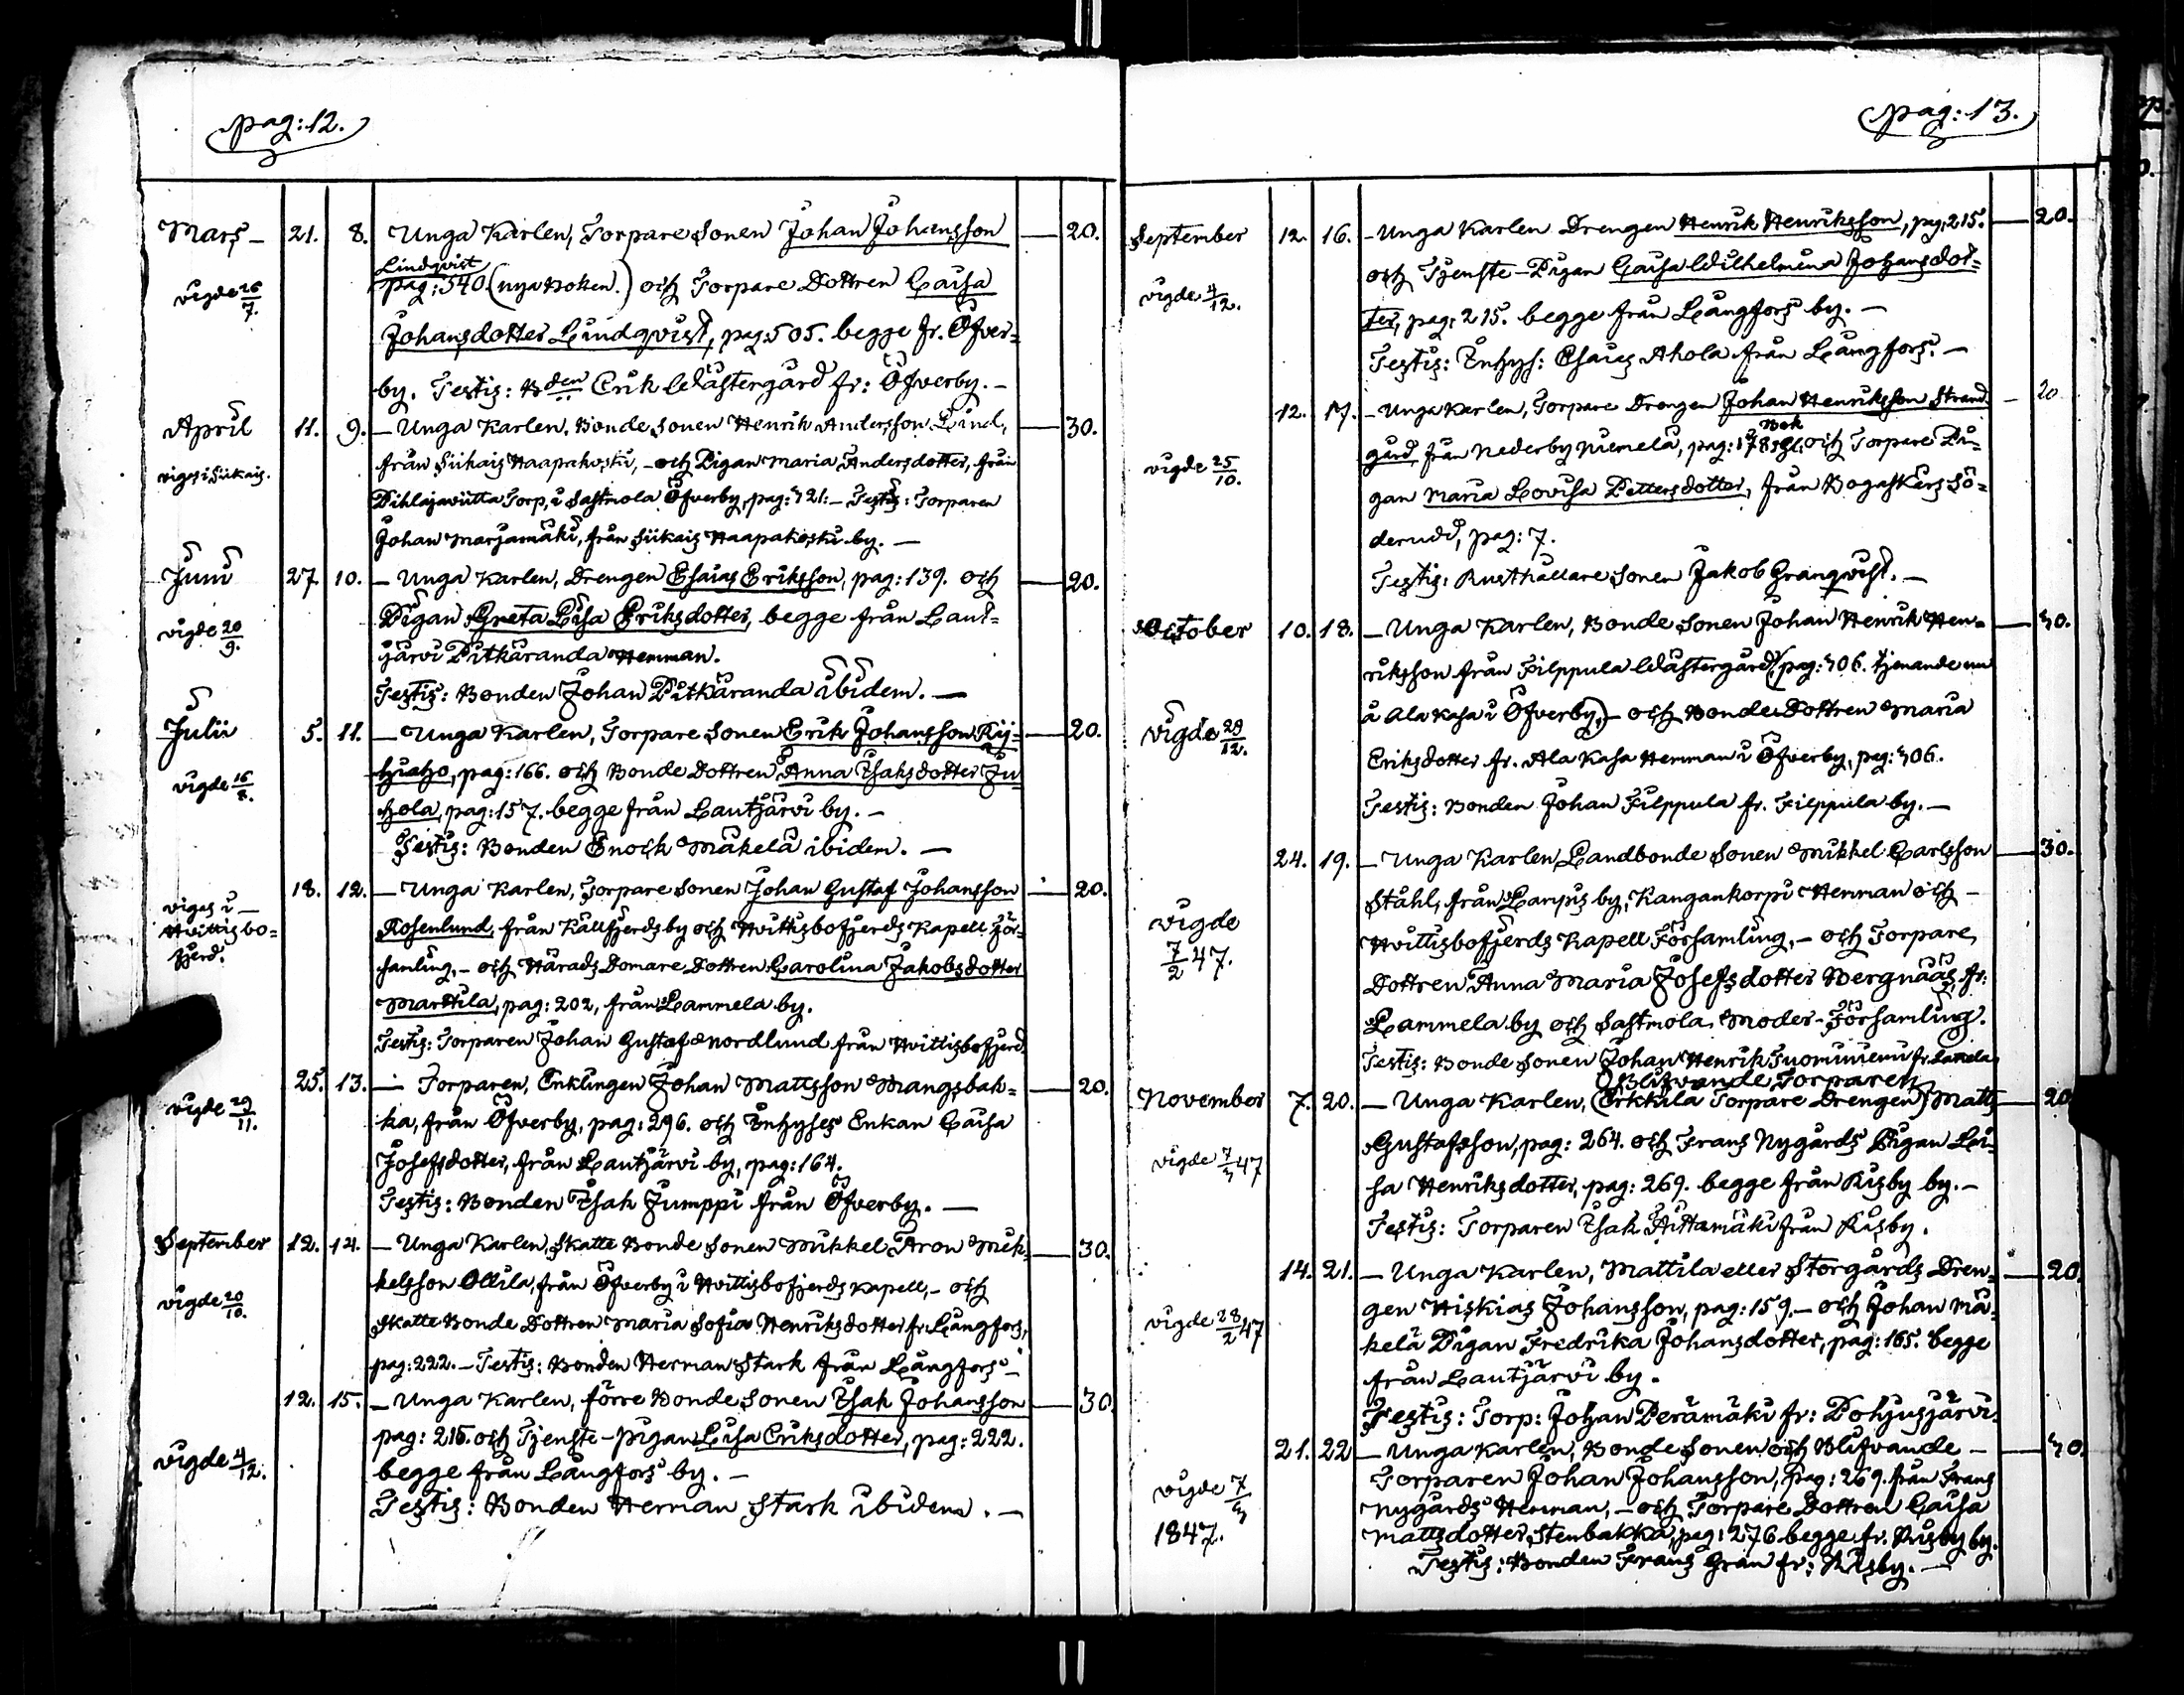 pag: 12.
Mars – 21. 8. Unga Karlen, Torpare Sonen Johan Johansson — 20.
Lindqvist
vigde 26/7. pag: 340. (nya Boken.) och Torpare Dottren Caisa
Johansdotter Lindqvist, pag: 505. begge fr. Öfver-
by. Testis: Bden Erik Wästergård fr: Öfverby. –
April 11. 9. – Unga Karlen, Bonde Sonen Henrik Andersson Lind, — 30.
viges i Siikais. från Siikais Haapakoski, – och Pigan Maria Andersdotter, från
Pihlajaviitta Torp, i Sastmola Öfverby, pag: 321: – Testis: Torparen
Johan Marjamäki, från Siikais Haapakoski by. —
Junii 27. 10. – Unga Karlen, Drengen Esaias Eriksson, pag: 139. och — 20.
vigde 20/9. Pigan Greta Lisa Eriksdotter, begge från Laut-
järvi Pitkäranda Hemman.
Testis: Bonden Johan Pitkäranda ibidem. —
Julii 5. 11. – Unga Karlen, Torpare Sonen Erik Johansson Rij- — 20.
vigde 16/8. hiaho, pag: 166. och Bonde Dottren Anna Isaksdotter Ju
hola, pag: 157. begge från Lautjärvi by. –
Testis: Bonden Enoch Mäkelä ibidem. —
18. 12. – Unga Karlen, Torpare Sonen Johan Gustaf Johansson — 20.
viges i –
Hvittisbo-
fjerd.
Rosenlund, från Källfjerds by och Hvittisbofjerds Kapell För-
samling, – och Härads Domare Dottren Carolina Jakobsdotter
Marttila, pag: 202, från Lammela by.
Testis: Torparen Johan Gustaf Nordlund från Hvittisbofjerd.
25. 13. – Torparen, Enklingen Johan Mattsson Mangsbak- — 20.
vigde 29/11. ka, från Öfverby, pag: 296. och Inhyses Enkan Caisa
Josefsdotter, från Lautjärvi by, pag: 164.
Testis: Bonden Isak Jumppi från Öfverby. —
September 12. 14. – Unga Karlen, Skatte Bonde Sonen Mikkel Aron Mik- — 30.
vigde 20/10. kelsson Ollila, från Öfverby i Hvittisbofjerds Kapell, – och
Skatte Bonde Dottren Maria Sofia Henriksdotter fr. Långfors,
pag: 222. – Testis: Bonden Herman Stark från Långfors –
12. 15. – Unga Karlen, förre Bonde Sonen Isak Johansson — 30.
vigde 4/12. pag: 216. och Tjenste-pigan Lisa Eriksdotter, pag: 222.
begge från Långfors by. –
Testis: Bonden Herman Stark ibidem. –
pag: 13.
September 12. 16. – Unga Karlen Drengen Henrik Henriksson, pag: 215. — 20.
vigde 4/12. och Tjenste-Pigan Caisa Wilhelmina Johansdot-
ter, pag: 215. begge från Långfors by. –
Testis: Inhys: Esaias Ahola från Långfors. –
12. 17. – Unga Karlen, Torpare Drengen Johan Henriksson Strand – 20
vigde 25/10. gård, från Nederby Niemelä, pag: 178 och Torpare Pi-
gan Maria Lovisa Pettersdotter, från Bogaskers Sö-
derudd, pag: 7.
Testis: Rusthållare Sonen Jakob Granqvist. –
October 10. 18. – Unga Karlen, Bonde Sonen Johan Henrik Hen- — 30.
riksson från Filppula Wästergård, (pag: 306. tjenande nu
vigde 29/12. å Ala Kasa i Öfverby,) – och Bonde Dottren Maria
Eriksdotter fr. Ala Kasa Hemman i Öfverby, pag: 306.
Testis: Bonden Johan Filppula fr. Filppula by. –
24. 19. – Unga Karlen, Landbonde Sonen Mikkel Carlsson — 30.
vigde 7/2 47. Ståhl, från Lampis by, Kangankorpi Hemman och –
Hvittisbofjerds Kapell Församling, – och Torpare
Dottren Anna Maria Josefsdotter Bergnääs, fr:
Lammela by och Sastmola Moder-Församling.
Testis: Bonde Sonen Johan Henrik Tuominiemi fr.
Blifvande Torparen
November 7. 20. – Unga Karlen, (Erkkilä Torpare Drengen) Matts — 20
vigde 7/3 47 Gustafsson, pag: 264. och Frans Nygårds Pigan Lei-
sa Henriksdotter, pag: 269. begge från Risby by. –
Testis: Torparen Isak Aittamäki från Risby.
14. 21. – Unga Karlen, Mattila eller Storgårds Dren- — 20.
vigde 28/2 47 gen Hiskias Johansson, pag: 159. – och Johan Mä-
kelä Pigan Fredrika Johansdotter, pag: 165. begge
från Lautjärvi by.
Testis: Torp: Johan Perämäki fr: Pohjusjärvi.
21. 22 – Unga Karlen, Bonde Sonen och Blifvande – — 30.
vigde 7/3
1847.
Torparen Johan Johansson, pag: 269. från Frans
Nygårds Hemman, – och Torpare Dottren Caisa
Mattsdotter Stenbakka, pag: 276 begge fr. Risby by.
Testis: Bonden Frans Grän fr: Risby. –